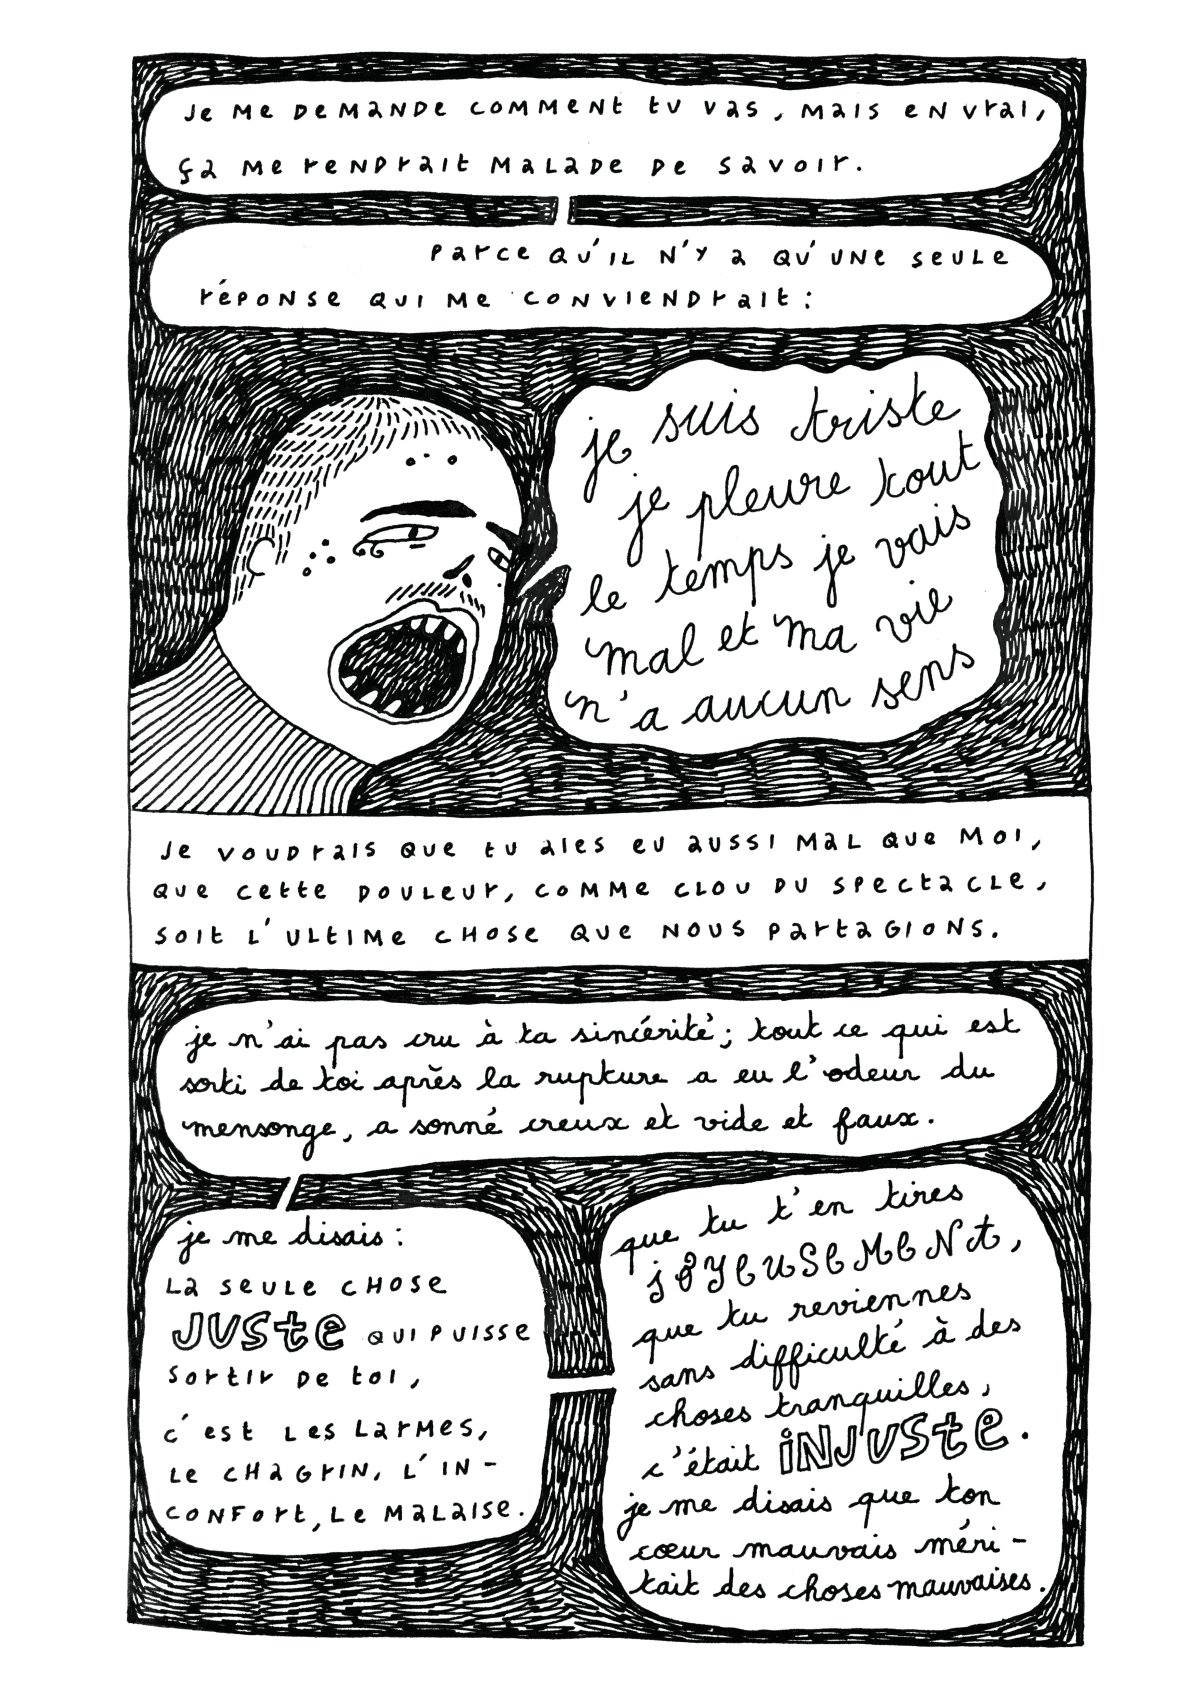 je me demande comment tu vas, mais en vrai,
ça me rendrait malade de savoir.
parce qu'il n'y a qu'une seule
réponse qui me conviendrait :
je suis triste
je pleure tout
le temps je vais
mal et ma vie
n'a aucun sens
je voudrais que tu aies eu aussi mal que moi,
que cette douleur, comme clou du spectacle,
soit l'ultime chose que nous partagions.
je n'ai pas cru à ta sincérité ; tout ce qui est
sorti de toi après la rupture a eu l'odeur du
mensonge, a sonné creux et vide et faux.
je me disais :
la seule chose
JUSte qui puisse
sortir de toi,
c'est les larmes,
le chagrin, l'in-
confort, le malaise.
que tu t'en tires
joyeusement,
que tu reviennes
sans difficulté à des
choses tranquilles,
c'était iNJUSte.
je me disais que ton
cœur mauvais méri-
tait des choses mauvaises.